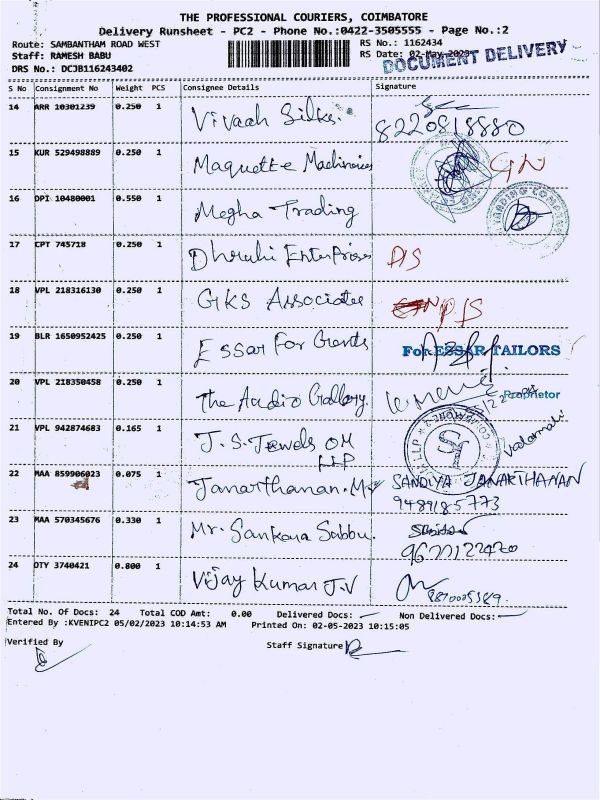 THE PROFESSIONAL COURIERS, COIMBATORE
Delivery Runsheet - PC2 - Phone No.:0422-3505555 - Page No.:2
Route: SAMBANTHAM ROAD WEST RS No.: 1162434
Staff: RAMESH BABU RS Date: 02-May-2023
DRS No.: DCJB116243402 DOCUMENT DELIVERY
S No Consignment No Weight PCS Consignee Details Signature
14 ARR 10301239 0.250 1 Vivaah Silks. 8220818880
15 KUR 529498889 0.250 1 Maquette Machineries
16 DPI 10480001 0.550 1 Megha Trading
TRADING COMPANY
17 CPT 745718 0.250 1 Dhruhi Enterprises
18 VPL 218316130 0.250 1 GKS Associates
19 BLR 1650952425 0.250 1 Essar For Grants For ESSAR TAILORS
20 VPL 218350458 0.250 1 The Audio Gallery. Proprietor
21 VPL 942874683 0.165 1 J.S. Jewels OM
LLP
22 MAA 859906023 0.075 1 Janarthanan. SANDIYA JANARTHANAN
9489185773
23 MAA 570345676 0.330 1 Mr. Sankara Subbu.
24 OTY 3740421 0.800 1 Vijay Kumar J.V
Total No. Of Docs: 24 Total COD Amt: 0.00 Delivered Docs: Non Delivered Docs:
Entered By :KVENIPC2 05/02/2023 10:14:53 AM Printed On: 02-05-2023 10:15:05
Verified By Staff Signature